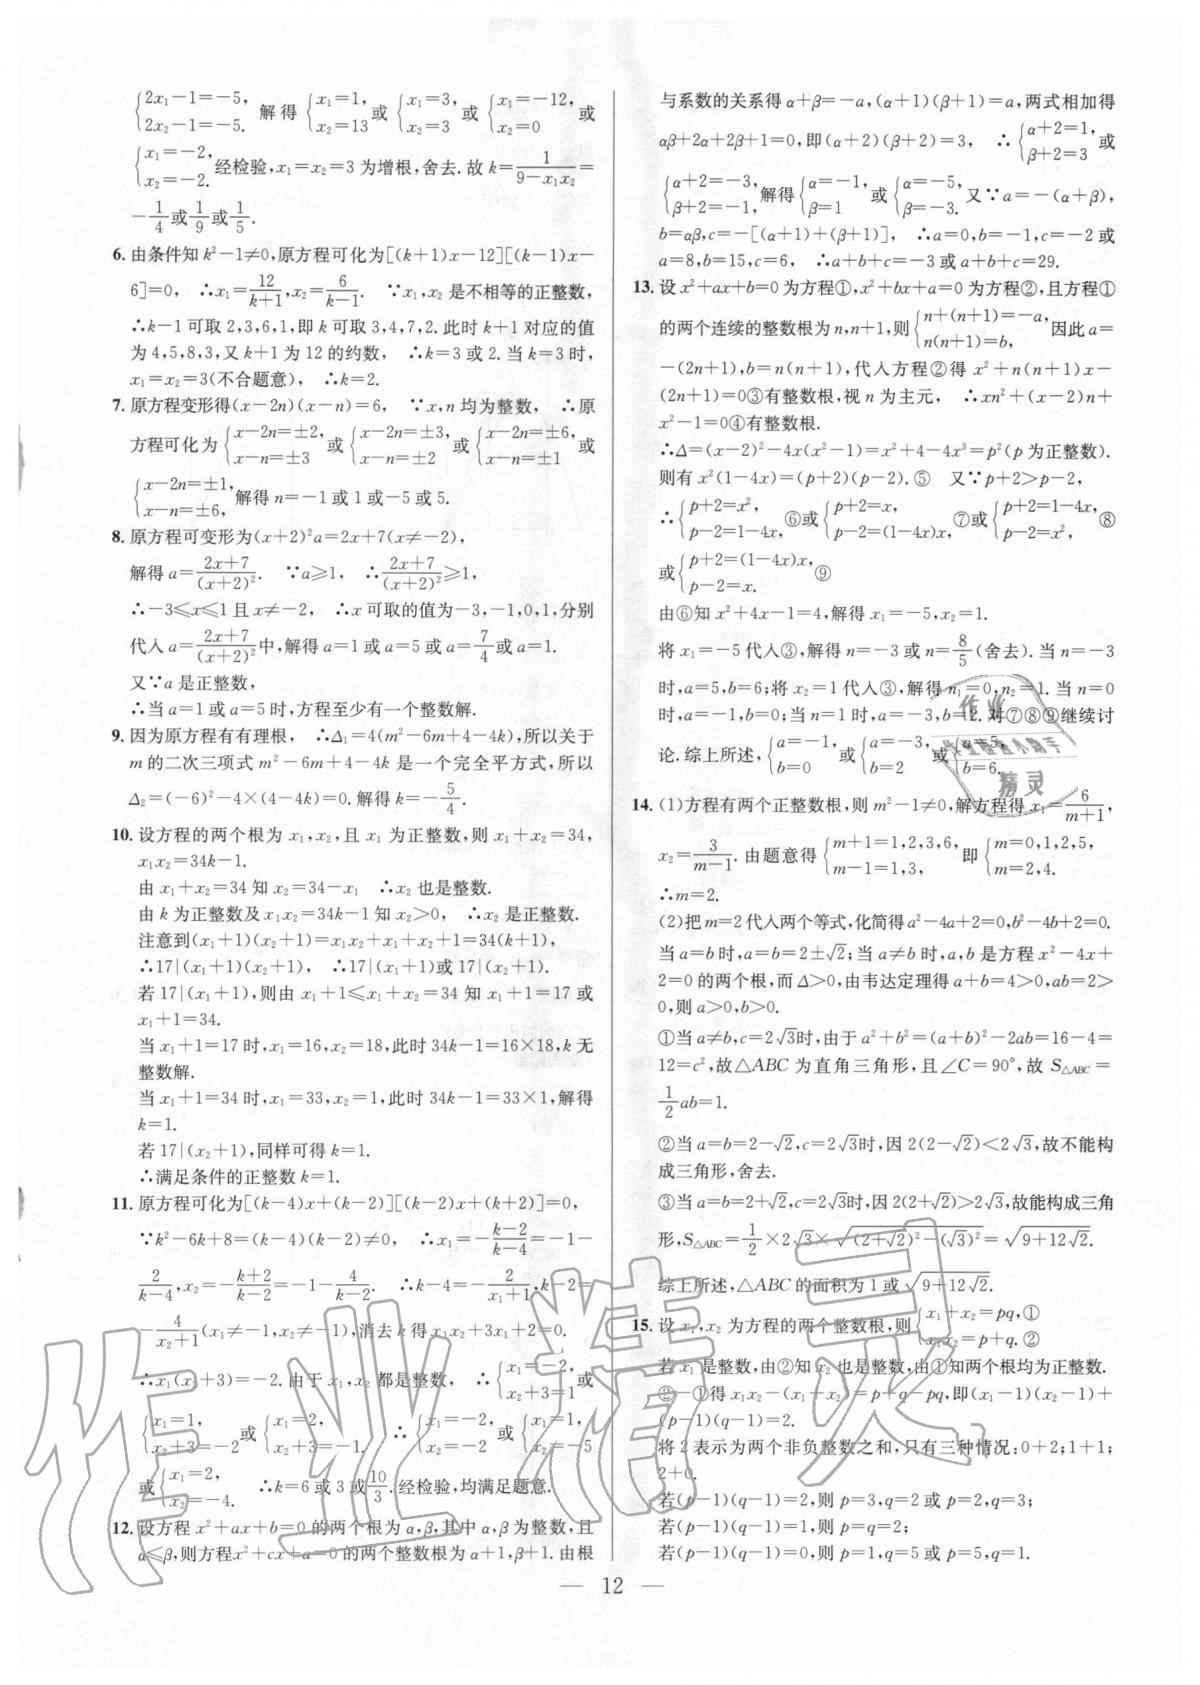 {2x₁-1=-5, 2x₂-1=-5. 解得{x₁=1, x₂=13 或{x₁=3, x₂=3 或{x₁=-12, x₂=0 或
{x₁=-2, x₂=-2. 经检验,x₁=x₂=3为增根,舍去.故k=1/(9-x₁x₂)=
-1/4或1/9或1/5.
6. 由条件知k²-1≠0,原方程可化为[(k+1)x-12][(k-1)x-
6]=0, ∴x₁=12/(k+1),x₂=6/(k-1). ∵x₁,x₂是不相等的正整数,
∴k-1可取2,3,6,1,即k可取3,4,7,2.此时k+1对应的值
为4,5,8,3,又k+1为12的约数, ∴k=3或2.当k=3时,
x₁=x₂=3(不合题意), ∴k=2.
7. 原方程变形得(x-2n)(x-n)=6, ∵x,n均为整数, ∴原
方程可化为{x-2n=±2, x-n=±3 或{x-2n=±3, x-n=±2 或{x-2n=±6, x-n=±1 或
{x-2n=±1, x-n=±6, 解得n=-1或1或-5或5.
8. 原方程可变形为(x+2)²a=2x+7(x≠-2),
解得a=(2x+7)/(x+2)². ∵a≥1, ∴(2x+7)/(x+2)²≥1,
∴-3≤x≤1且x≠-2, ∴x可取的值为-3,-1,0,1,分别
代入a=(2x+7)/(x+2)²中,解得a=1或a=5或a=7/4或a=1.
又∵a是正整数,
∴当a=1或a=5时,方程至少有一个整数解.
9. 因为原方程有有理根, ∴Δ₁=4(m²-6m+4-4k),所以关于
m的二次三项式m²-6m+4-4k是一个完全平方式,所以
Δ₂=(-6)²-4×(4-4k)=0.解得k=-5/4.
10. 设方程的两个根为x₁,x₂,且x₁为正整数,则x₁+x₂=34,
x₁x₂=34k-1.
由x₁+x₂=34知x₂=34-x₁ ∴x₂也是整数.
由k为正整数及x₁x₂=34k-1知x₂>0, ∴x₂是正整数.
注意到(x₁+1)(x₂+1)=x₁x₂+x₁+x₂+1=34(k+1),
∴17|(x₁+1)(x₂+1), ∴17|(x₁+1)或17|(x₂+1).
若17|(x₁+1),则由x₁+1≤x₁+x₂=34知x₁+1=17或
x₁+1=34.
当x₁+1=17时,x₁=16,x₂=18,此时34k-1=16×18,k无
整数解.
当x₁+1=34时,x₁=33,x₂=1,此时34k-1=33×1,解得
k=1.
若17|(x₂+1),同样可得k=1.
∴满足条件的正整数k=1.
11. 原方程可化为[(k-4)x+(k-2)][(k-2)x+(k+2)]=0,
∵k²-6k+8=(k-4)(k-2)≠0, ∴x₁=-(k-2)/(k-4)=-1-
2/(k-4),x₂=-(k+2)/(k-2)=-1-4/(k-2). ∴k-4=-2/(x₁+1),k-2=
-4/(x₂+1)(x₁≠-1,x₂≠-1),消去k得x₁x₂+3x₁+2=0.
∴x₁(x₂+3)=-2.由于x₁,x₂都是整数, ∴{x₁=-2, x₂+3=1 或
{x₁=1, x₂+3=-2 或{x₁=2, x₂+3=-1. ∴{x₁=-2, x₂=-2 或{x₁=1, x₂=-5
或{x₁=2, x₂=-4. ∴k=6或3或10/3.经检验,均满足题意.
12. 设方程x²+ax+b=0的两个根为α,β,其中α,β为整数,且
α≤β,则方程x²+cx+a=0的两个整数根为α+1,β+1.由根
与系数的关系得α+β=-a,(α+1)(β+1)=a,两式相加得
αβ+2α+2β+1=0,即(α+2)(β+2)=3, ∴{α+2=1, β+2=3 或
{α+2=-3, β+2=-1, 解得{α=-1, β=1 或{α=-5, β=-3. 又∵a=-(α+β),
b=αβ,c=-[(α+1)+(β+1)], ∴a=0,b=-1,c=-2或
a=8,b=15,c=6, ∴a+b+c=-3或a+b+c=29.
13. 设x²+ax+b=0为方程①,x²+bx+a=0为方程②,且方程①
的两个连续的整数根为n,n+1,则{n+(n+1)=-a, n(n+1)=b, 因此a=
-(2n+1),b=n(n+1),代入方程②得x²+n(n+1)x-
(2n+1)=0③有整数根,视n为主元, ∴xn²+(x-2)n+
x²-1=0④有整数根.
∴Δ=(x-2)²-4x(x²-1)=x²+4-4x³=p²(p为正整数).
则有x²(1-4x)=(p+2)(p-2).⑤ 又∵p+2>p-2,
∴{p+2=x², p-2=1-4x, ⑥或{p+2=x, p-2=(1-4x)x ⑦或{p+2=1-4x, p-2=x² ⑧
或{p+2=(1-4x)x, p-2=x. ⑨
由⑥知x²+4x-1=4,解得x₁=-5,x₂=1.
将x₁=-5代入③,解得n=-3或n=8/5(舍去).当n=-3
时,a=5,b=6;将x₂=1代入③,解得n₁=0,n₂=1.当n=0
时,a=-1,b=0.当n=1时,a=-3,b=2.对⑦⑧⑨继续讨
论.综上所述,{a=-1, b=0 或{a=-3, b=2 或{a=5, b=6.
14. (1)方程有两个正整数根,则m²-1≠0,解方程得x₁=6/(m+1),
x₂=3/(m-1).由题意得{m+1=1,2,3,6, m-1=1,3, 即{m=0,1,2,5, m=2,4.
∴m=2.
(2)把m=2代入两个等式,化简得a²-4a+2=0,b²-4b+2=0.
当a=b时,a=b=2±√2;当a≠b时,a,b是方程x²-4x+
2=0的两个根,而Δ>0,由韦达定理得a+b=4>0,ab=2>
0,则a>0,b>0.
①当a≠b,c=2√3时,由于a²+b²=(a+b)²-2ab=16-4=
12=c²,故△ABC为直角三角形,且∠C=90°,故S△ABC=
1/2ab=1.
②当a=b=2-√2,c=2√3时,因2(2-√2)<2√3,故不能构
成三角形,舍去.
③当a=b=2+√2,c=2√3时,因2(2+√2)>2√3,故能构成三角
形,S△ABC=1/2×2√3×√((2+√2)²-(√3)²)=√(9+12√2).
综上所述,△ABC的面积为1或√(9+12√2).
15. 设x₁,x₂为方程的两个整数根,则{x₁+x₂=pq,① x₁x₂=p+q.②
若x₁是整数,由②知x₂也是整数,由①知两个根均为正整数.
②-①得x₁x₂-(x₁+x₂)=p+q-pq,即(x₁-1)(x₂-1)+
(p-1)(q-1)=2.
将2表示为两个非负整数之和,只有三种情况:0+2;1+1;
2+0.
若(p-1)(q-1)=2,则p=3,q=2或p=2,q=3;
若(p-1)(q-1)=1,则p=q=2;
若(p-1)(q-1)=0,则p=1,q=5或p=5,q=1.
— 12 —
作业精灵
作业
精灵